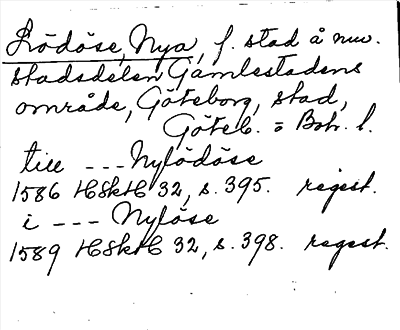 Lödöse, Nya, f. stad å nuv.
stadsdelen Gamlestadens
område, Göteborg, stad,
Göteb. o Boh. l.
till --- Nylödöse
1586 HSkH 32, s. 395. regest.
i --- Nylöse
1589 HSkH 32, s. 398. regest.